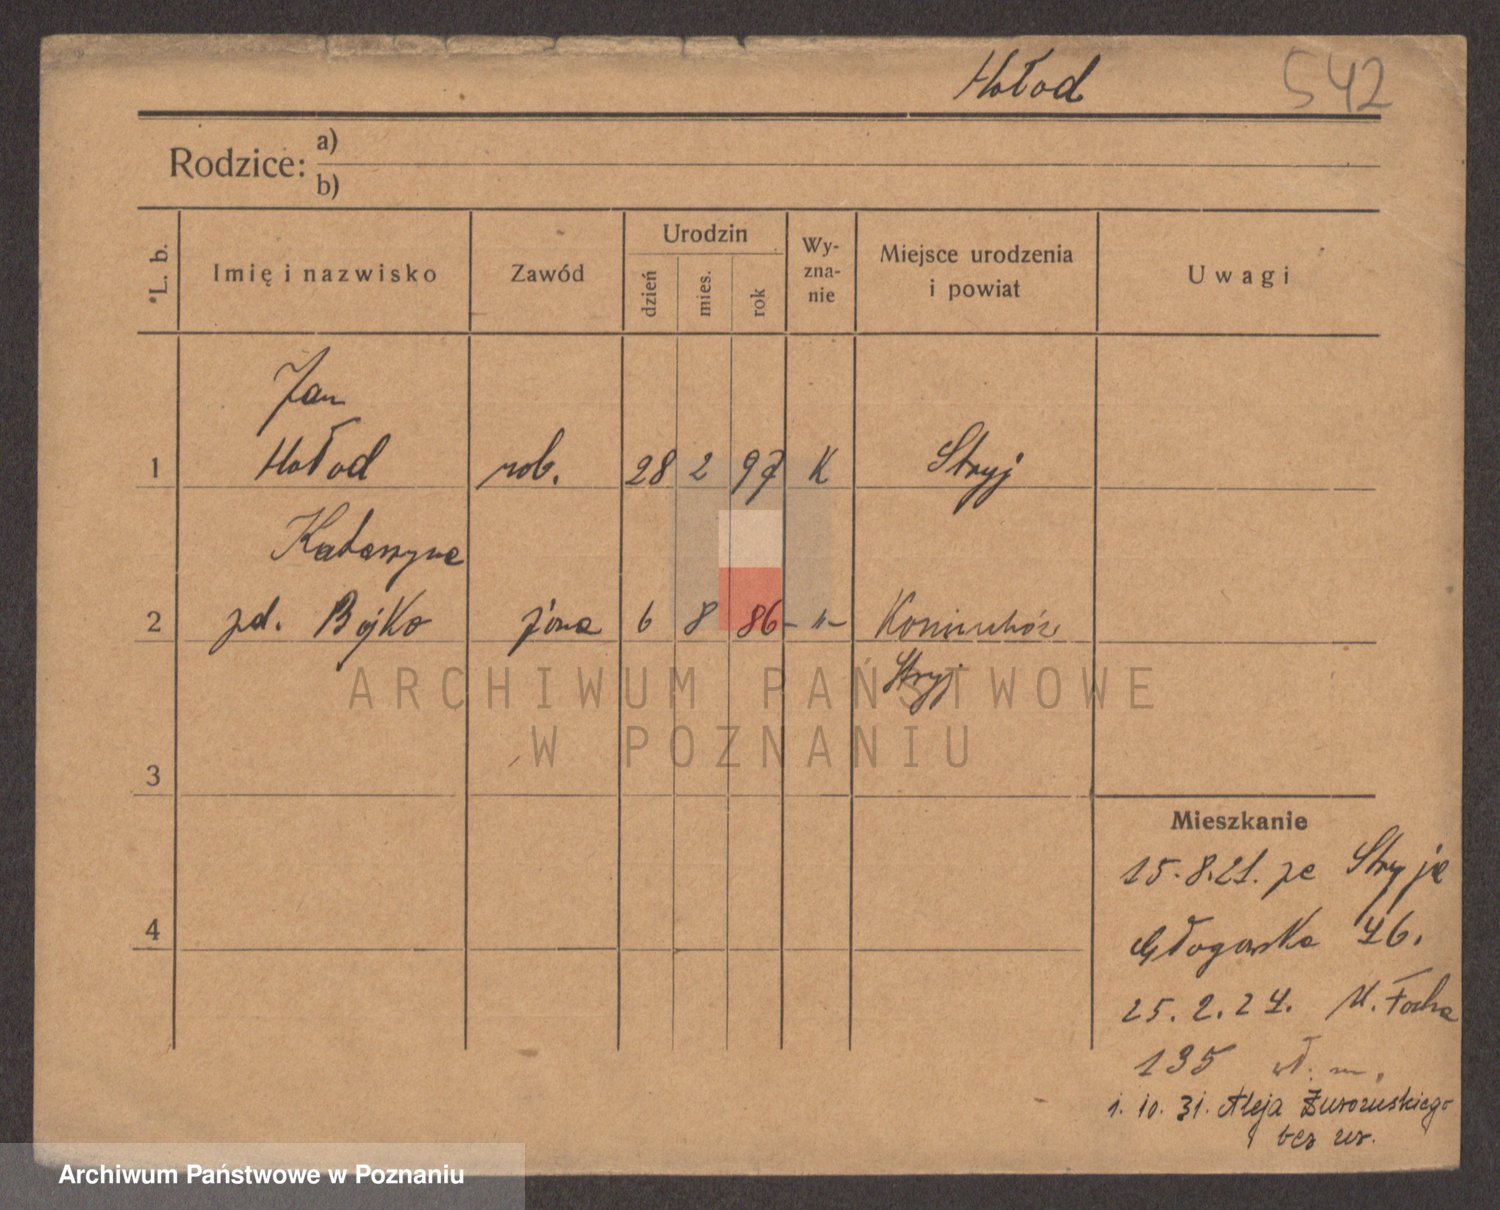 Hołod 542
Rodzice: a)
b)
L. b. Imię i nazwisko Zawód Urodzin dzień mies. rok Wy-zna-nie Miejsce urodzenia i powiat Uwagi
Jan
1 Hołod rob. 28 2 97 K Stryj
Katarzyna
2 zd. Bojko żona 6 8 86 -"- Koniuchów
Stryj
ARCHIWUM PAŃSTWOWE
W POZNANIU
3
Mieszkanie
15.8.21. ze Stryja
4
Głogowska 46.
25.2.24. M. Focha
135 wł. m.
1.10.31. Aleja
bez
Archiwum Państwowe w Poznaniu